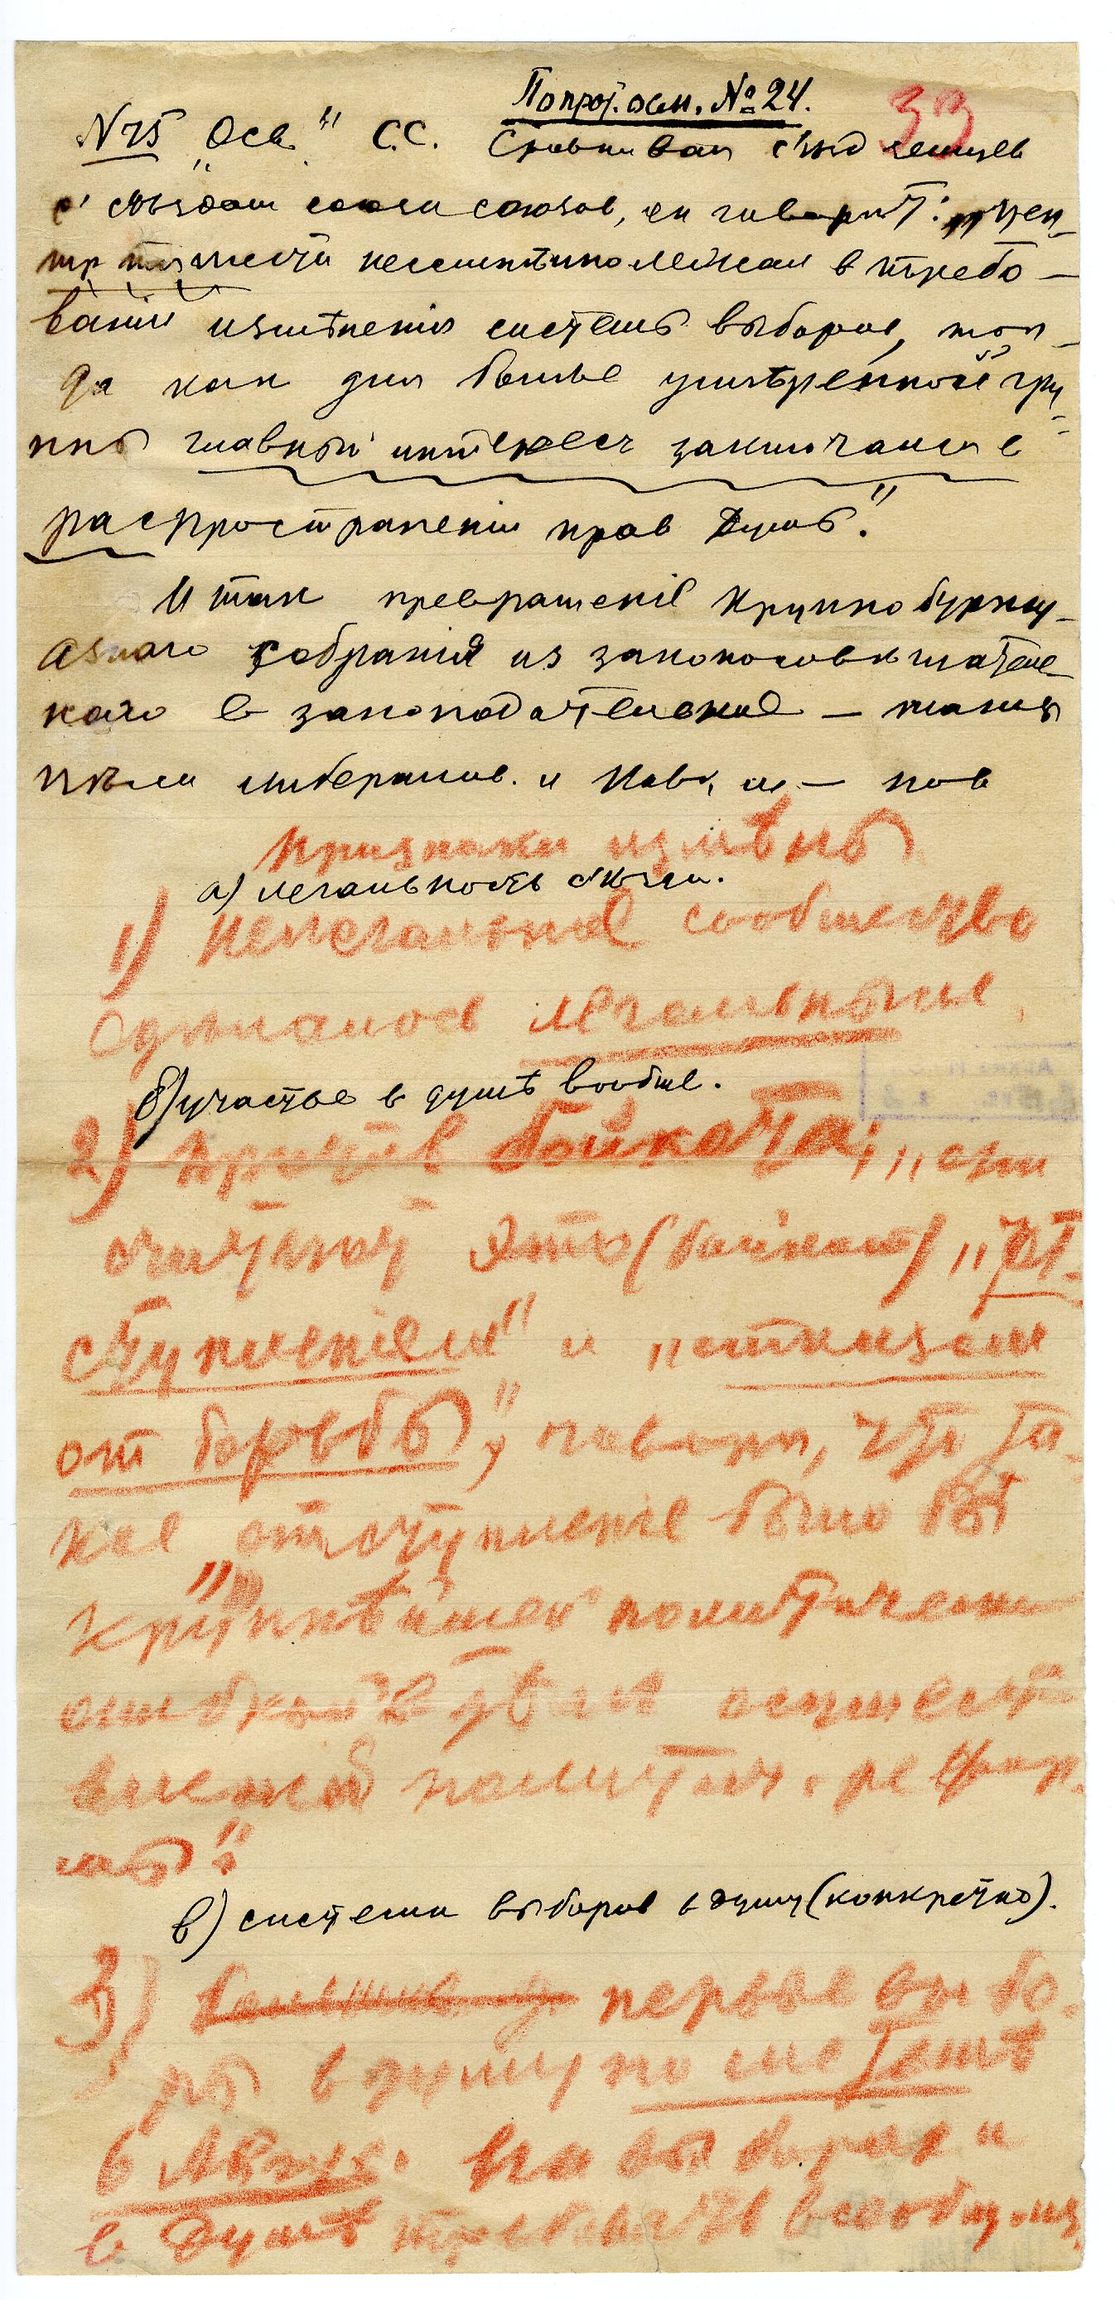 По прот. осм. № 24.
33
N 75 „Осв." С.С. Сравнивая съѣзд земцев
с съѣздом союза союзов, он говорит: „цен-
тр тяжести несомнѣнно лежал в требо-
вании измѣнения системы выборов, тог-
да как для более умѣренной гру-
ппы главный интерес заключался в
распространении прав Думы".
Итак превращение крупнобуржу-
азного собрания из законосовѣщатель-
ного в законодательное — таковы
цѣли либералов. и
признаки измѣны
а) легальность съѣзда.
1) Нелегальное сообщество
сдѣлалось легальным
б) участье в думѣ вообще.
2) Против бойкота; „они
считают это (бойкот) „от-
ступлением" и „отказом
от борьбы", говоря, что та-
кое отступление было бы
„крупнѣйшей политическ
ошибкой в дѣле осущест
вления политич. рефор-
мы".
в) система выборов в думу (конкретно).
3) первые выбо-
ры в думу по системѣ
6 Авг. На выборах и
в Думѣ требовать всеобщ. из